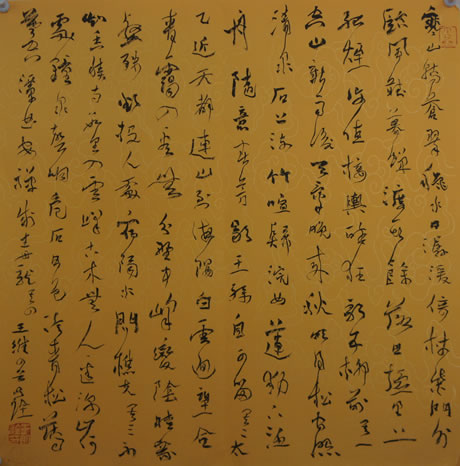 寒山轉蒼翠秋水日潺湲倚杖柴門外
臨風聽暮蟬渡頭餘落日墟里上
孤煙復值接輿醉狂歌五柳前其一
空山新雨後天氣晚來秋明月松間照
清泉石上流竹喧歸浣女蓮動下漁
舟隨意春芳歇王孫自可留其二太
乙近天都連山到海隅白雲迴望合
青靄入看無分野中峰變陰晴衆
壑殊欲投人處宿隔水問樵夫其三不
知香積寺數里入雲峰古木無人逕深山何
處鐘泉聲咽危石日色冷青松薄
暮空潭曲安禪制毒龍其四王維四首